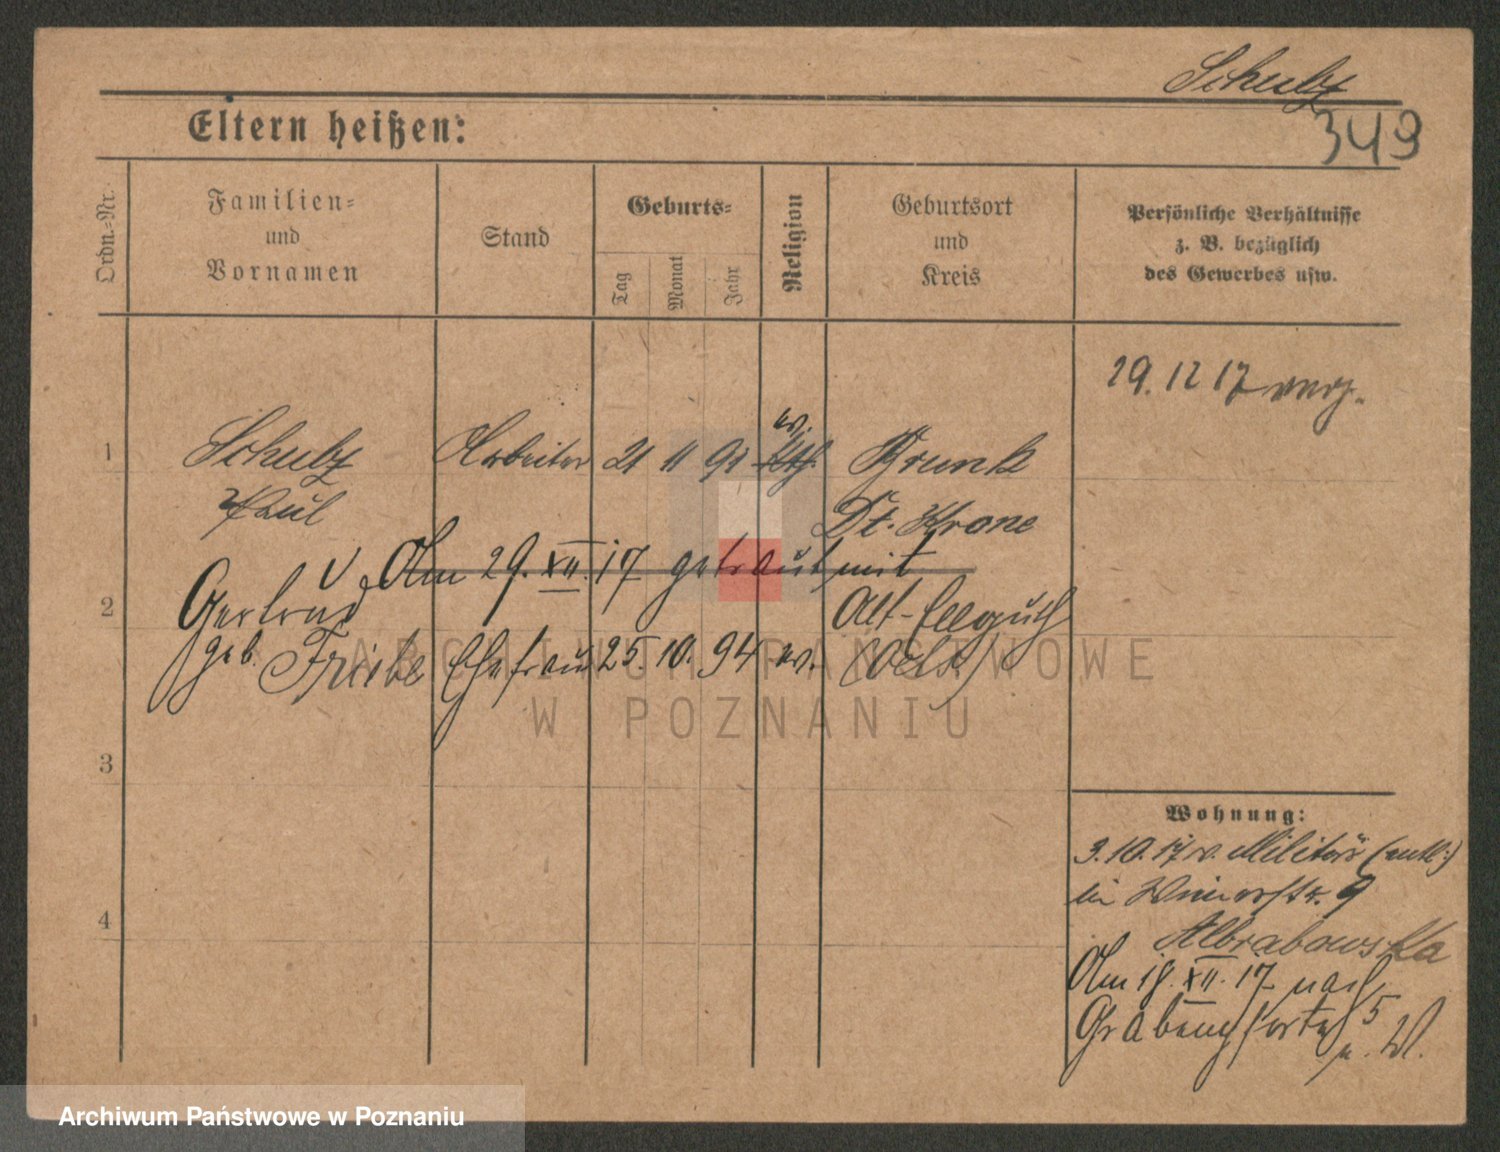 Schulz
349
Eltern heißen:
Ordn.-Nr.
Familien-
und
Vornamen
Stand
Geburts-
Tag
Monat
Jahr
Religion
Geburtsort
und
Kreis
Persönliche Verhältnisse
z. B. bezüglich
des Gewerbes usw.
29. 12 17
1
Schulz
Paul
Arbeiter
21 11 91
ev.
kth.
Brunk
Dt. Krone
Am 29. XII. 17 getraut mit
2
Gertrud
geb. Friebe
Ehefrau
25. 10. 94
ev.
Alt-Ellguth
(Oels)
3
4
Wohnung:
3. 10. 17 v. Militär (entl.)
in 9
Am 18. XII. 17 nach
Grabenpforte 5
Archiwum Państwowe
w Poznaniu
Archiwum Państwowe w Poznaniu